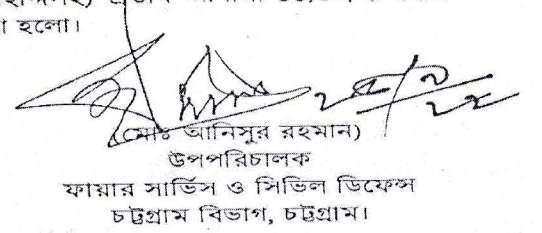 হলো।
(মোঃ আনিসুর রহমান)
উপপরিচালক
ফায়ার সার্ভিস ও সিভিল ডিফেন্স
চট্টগ্রাম বিভাগ, চট্টগ্রাম।